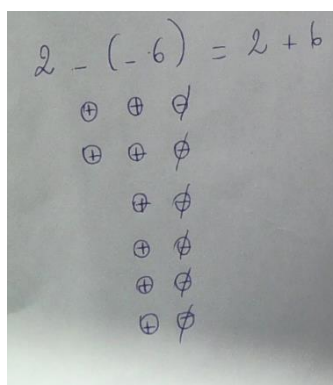 2 - (- 6) = 2 + 6
⊕ ⊕ ⊖
⊕ ⊕ ⊖
⊕ ⊖
⊕ ⊖
⊕ ⊖
⊕ ⊖